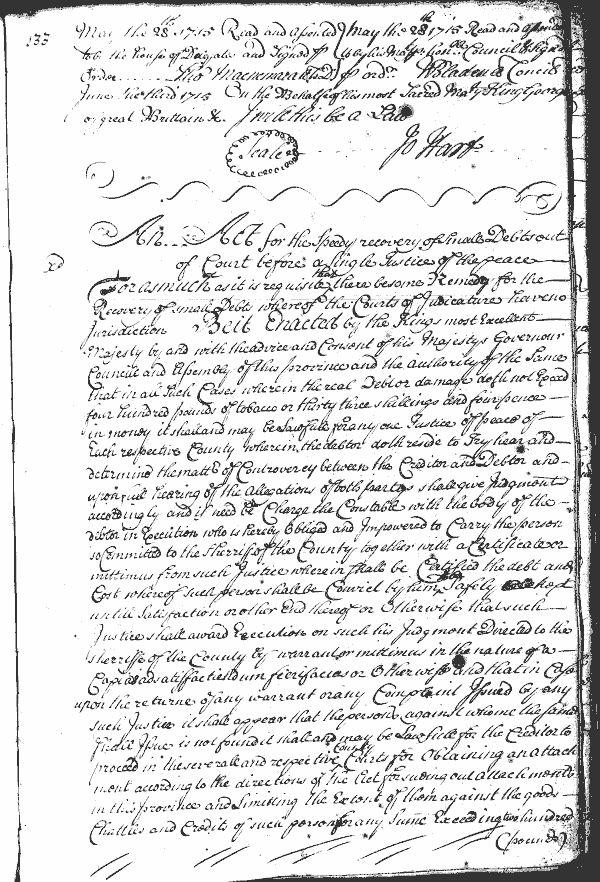 133
May the 28th 1715 Read and assented May the 28th 1715 Read and assented
to by the house of Delgates and Signed p Councill & Sign
Order Tho Macnemara p ordr. WBladen Concil
June the third 1715 On the Behalfe of his most Sacred Maty King George
of great Brittain &c. I will this be a Law
Seale Jo Hart
An Act for the Speedy recovery of small Debts out
of Court before a single Justice of the peace
Forasmuch as it is requisite that there be some Remedy for the
Recovery of small Debts whereof the Courts of Judicature have no
Jurisdiction Beit Enacted by the Kings most Excellent
Majesty by and with the advice and Consent of his Majestys Governour
Councill and Assembly of this province and the Authority of the Same
that in all Such Cases wherein the real Debt or damage doth not Exceed
four hundred pounds of tobacco or thirty three shillings and four pence
in money it shall and may be Lawfull for any one Justice of peace of
Each respective County wherein the debtor doth reside to Try hear and
determine the mattr of Controversy between the Creditor and Debtor and
upon full hearing of the allegations of both partys shall give Judgment
accordingly and if need be Charge the Constable with the body of the
debtor in Execution who is hereby Obliged and Impowered to Carry the person
so Committed to the Sherriff of the County together with a Certificate or
mittimus from such Justice wherein shall be Certified the debt and
Cost whereof such person shall be Convict by him Safely kept
until Satisfaction or other End thereof or Otherwise that such
Justice shall award Execution on such his Judgment Directed to the
sherriffe of the County by warrant or mittimus in the nature of a
Capias ad satisfaciendum fierifacias or Otherwise and that in Case
upon the returne of any warrant or any Complaint Issued by any
such Justice it shall appear that the persons against whome the same
shall Issue is not found it shall and may be Lawfull for the Creditor to
proceed in the severall and respective County Courts for Obtaining an attach
ment according to the directions of The Act for sueing out attachments
in this province and Limitting the Extent of them against the goods
Chattles and Credits of such person for any Sume Exceeding two hundred
pounds